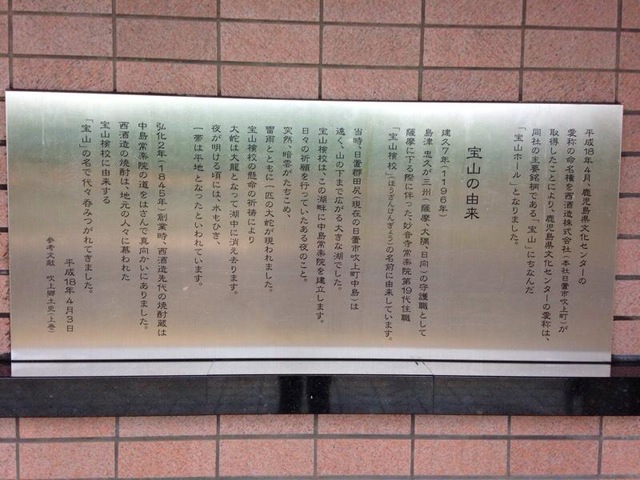 平成18年4月、鹿児島県文化センターの
愛称の命名権を西酒造株式会社(本社日置市吹上町)が
取得したことにより、鹿児島県文化センターの愛称は、
同社の主要銘柄である、「宝山」にちなんだ
「宝山ホール」となりました。
宝山の由来
建久7年(1196年)
島津忠久が三州(薩摩・大隅、日向)の守護職として
薩摩に下る際に伴った、妙音寺常楽院第19代住職
「宝山検校」(ほうざんけんぎょう)の名前に由来しています。
当時、日置郡田尻(現在の日置市吹上町中島)は
遠く、山の下まで広がる大きな湖でした。
宝山検校は、この湖畔に中島常楽院を建立します。
日々の祈願を行っていたある夜のこと。
突然、暗雲がたちこめ、
雷雨とともに一匹の大蛇が現われました。
宝山検校の懸命の祈祷により
大蛇は大龍となって湖中に消え去ります。
夜が明ける頃には、水もひき、
一帯は平地となったといわれています。
弘化2年(1845年)創業時、西酒造先代の焼酎蔵は
中島常楽院の道をはさんで真向かいにありました。
西酒造の焼酎は、地元の人々に慕われた
宝山検校に由来する
「宝山」の名で代々呑みつがれてきました。
平成18年4月3日
参考文献 吹上郷土史(上巻)